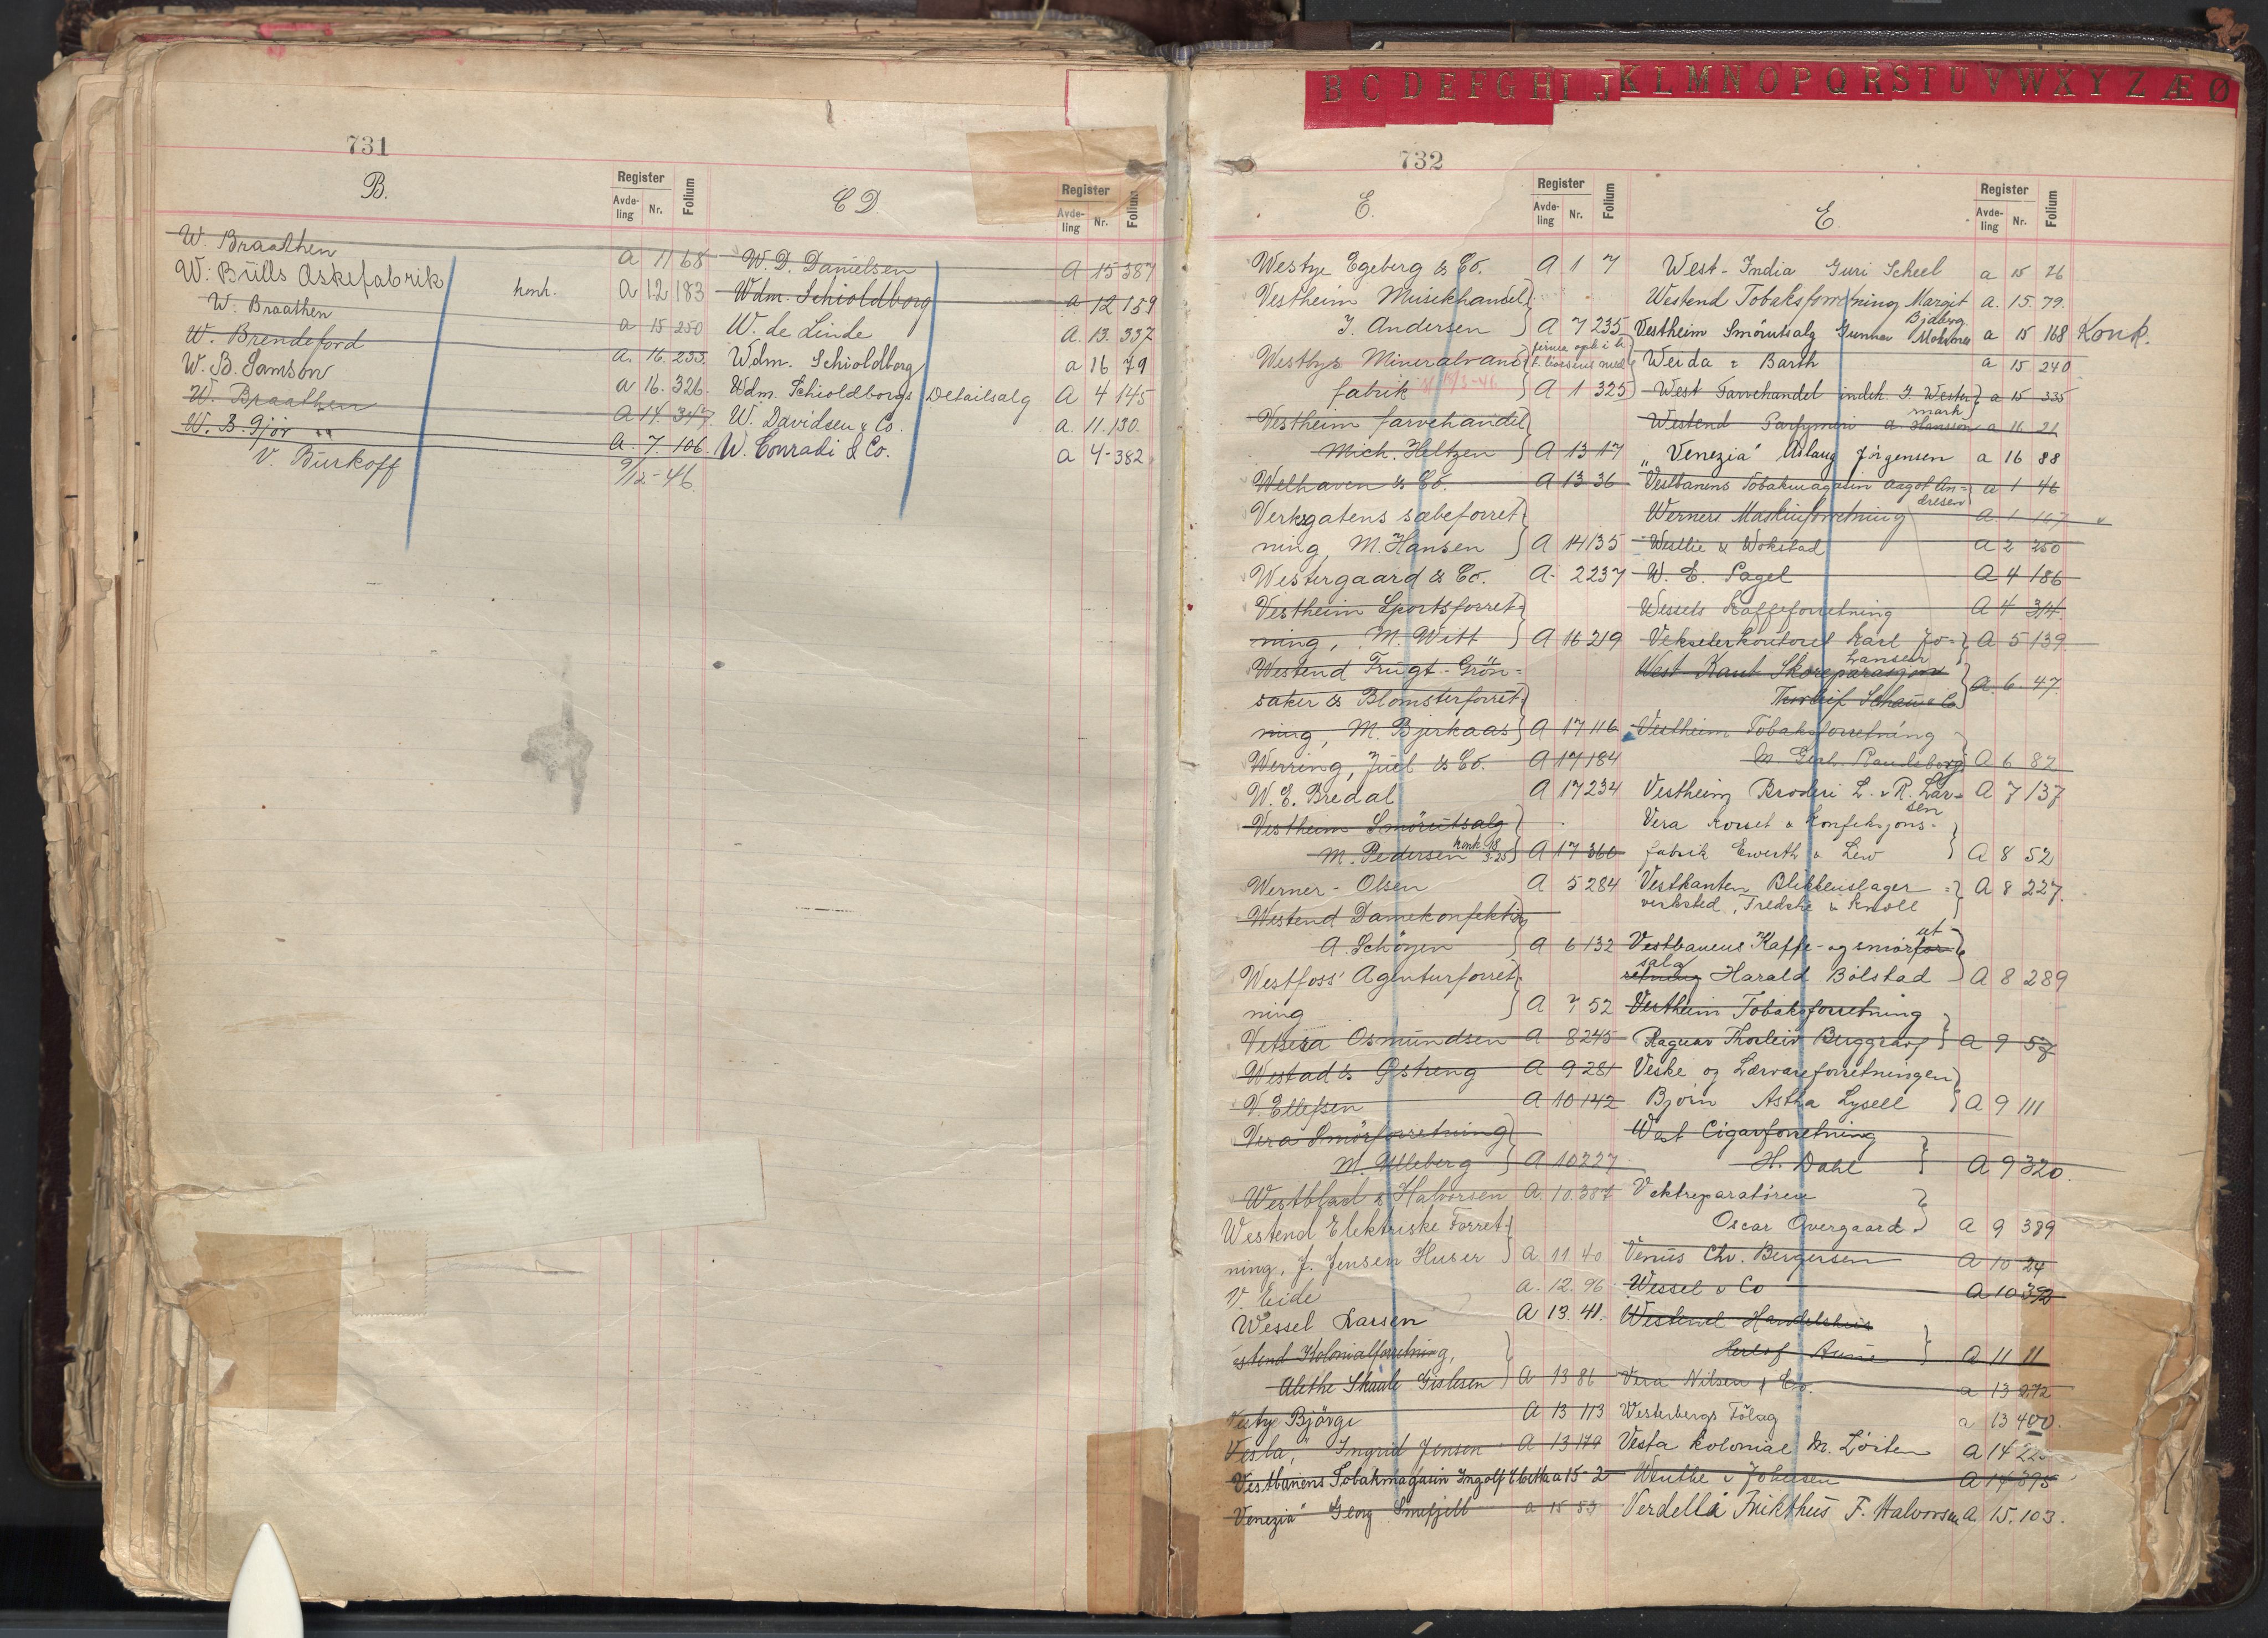 731
B.
Register
Avde-
ling
Nr.
Folium
W. Braathen a 11 68
W. Bülls Oskefabrik konk. a 12 183
W. Braathen a 15 250
W. Brendeford a. 16. 233.
W. B. Samson a 16. 326.
W. Braathen a 14. 347.
W. B. Gjör a. 7. 106.
V. Burkoff 9/12-46.
C D
Register
Avde-
ling
Nr.
Folium
W. D. Danielsen a 15 387
Wdm. Schioldborg a 12 159
W. de Linde a. 13. 337
Wdm. Schioldborg a 16 79
Wdm. Schioldborgs Detailsalg a 4 145
W. Davidsen & Co. a. 11. 130.
W. Conradi & Co. a 4-382
B C D E F G H I J K L M N O P Q R S T U V W X Y Z Æ Ø
732
E.
Register
Avde-
ling
Nr.
Folium
Westye Egeberg & Co. A 1 7
Vestheim Musikhandel
J. Andersen A 7 235
Westbys Mineralvand
fabrik A 1 325
Vestheim farvehandel
Mich. Heltzen A 13 17
Welhaven & Co. A 13 36
Verksgatens sæbeforret-
ning, M. Hansen A 14 135
Westergaard & Co. A 2 237
Vestheim Sportsforret-
ning, M. Witt A 16 219
Westend Frugt- Grön-
saker & Blomsterforret-
ning, M. Bjerkaas A 17 116
Werring, Juel & Co. A 17 184
W. E. Bredal A 17 234
Vestheim Smörutsalg
M. Pedersen konk. A 17 360
Werner-Olsen A 5 284
Westend Damekonfektion
A. Schöyen A 6 132
Westfoss' Agenturforret-
ning A 7 52
Vetsera Osmundsen A 8 245
Westad & Østreng A 9 281
V. Ellefsen A 10 142
Vera Smörforretning
M. Ulleberg A 10 227
Westblad & Halvorsen A. 10. 387
Westend Elektriske Forret-
ning, J. Jensen Huser a 11. 40
V. Eide a. 12. 96
Wessel Larsen A 13. 41.
estend Kolonialforretning,
Alethe Skaale Gislesen A 13 86
Vesty Bjövge A 13 113
Vesla, Ingrid Jensen A 13 179
Vestbanens Tobakmagasin Ingolf a 15-2
Venezia" Georg Snefjell a 15 53
E
Register
Avde-
ling
Nr.
Folium
West-India Guri Scheel a 15 76
Westend Tobaksforretning Margit
Bjaberg a. 15. 79.
Vestheim Smörutsalg Gunnar a 15 168 Konk.
Weida & Barth a 15 240
West Farvehandel indeh. J. Wester-
mark a 15 335
Westend Parfymeri A. Hansson a 16 21
"Venezia" Aslaug Jörgensen a 16 88
Vestbanens Tobakmagasin Aagot An-
dresen a 1 46
Werners Maskinforretning a. 1 167
Westlie & Wokstad a 2 250
W. E. Pagel A 4 186
Wessels Kaffeforretning A 4 314
Vekselerkontoret Karl Jo-
hansen A 5 139
West Kant Skoreparasjon
Thorleif Schau & Co A. 6. 47.
Vestheim Tobaksforretning
M. Gerh. Randsborg A 6 82
Vestheim Broderi L. & R. Lar-
sen A 7 137
Vera Korset & Konfeksjons-
fabrik Ewerth & Lew A 8 52
Vestkanten Blikkenslager-
verksted, Fredski & Knoll A 8 227.
Vestbanens Kaffe- og smörfor-
ut
salg
retning Harald Bolstad A 8 289
Vestheim Tobaksforretning
Ragnar Thorleiv Berggrav A 9 57
Veske og Lærvareforretningen
Bjoin Astha Lysell A 9 111
West Cigarforretning
H. Dahl A 9 320.
Vektreparatören
Oscar Overgaard A 9 389
Venus Chr. Bergersen A 10 24
Wessel & Co A 10 393
Westend Handelshus
Herlof Aune A 11 11
Vera Nilsen & Co. a 13 272
Westerbergs Tölag a 13 400.
Vesta Kolonial M. Löiten a 14
Wenthe & Johnsen a 14 395
Verdella Frukthus F. Halvorsen A. 15. 103.